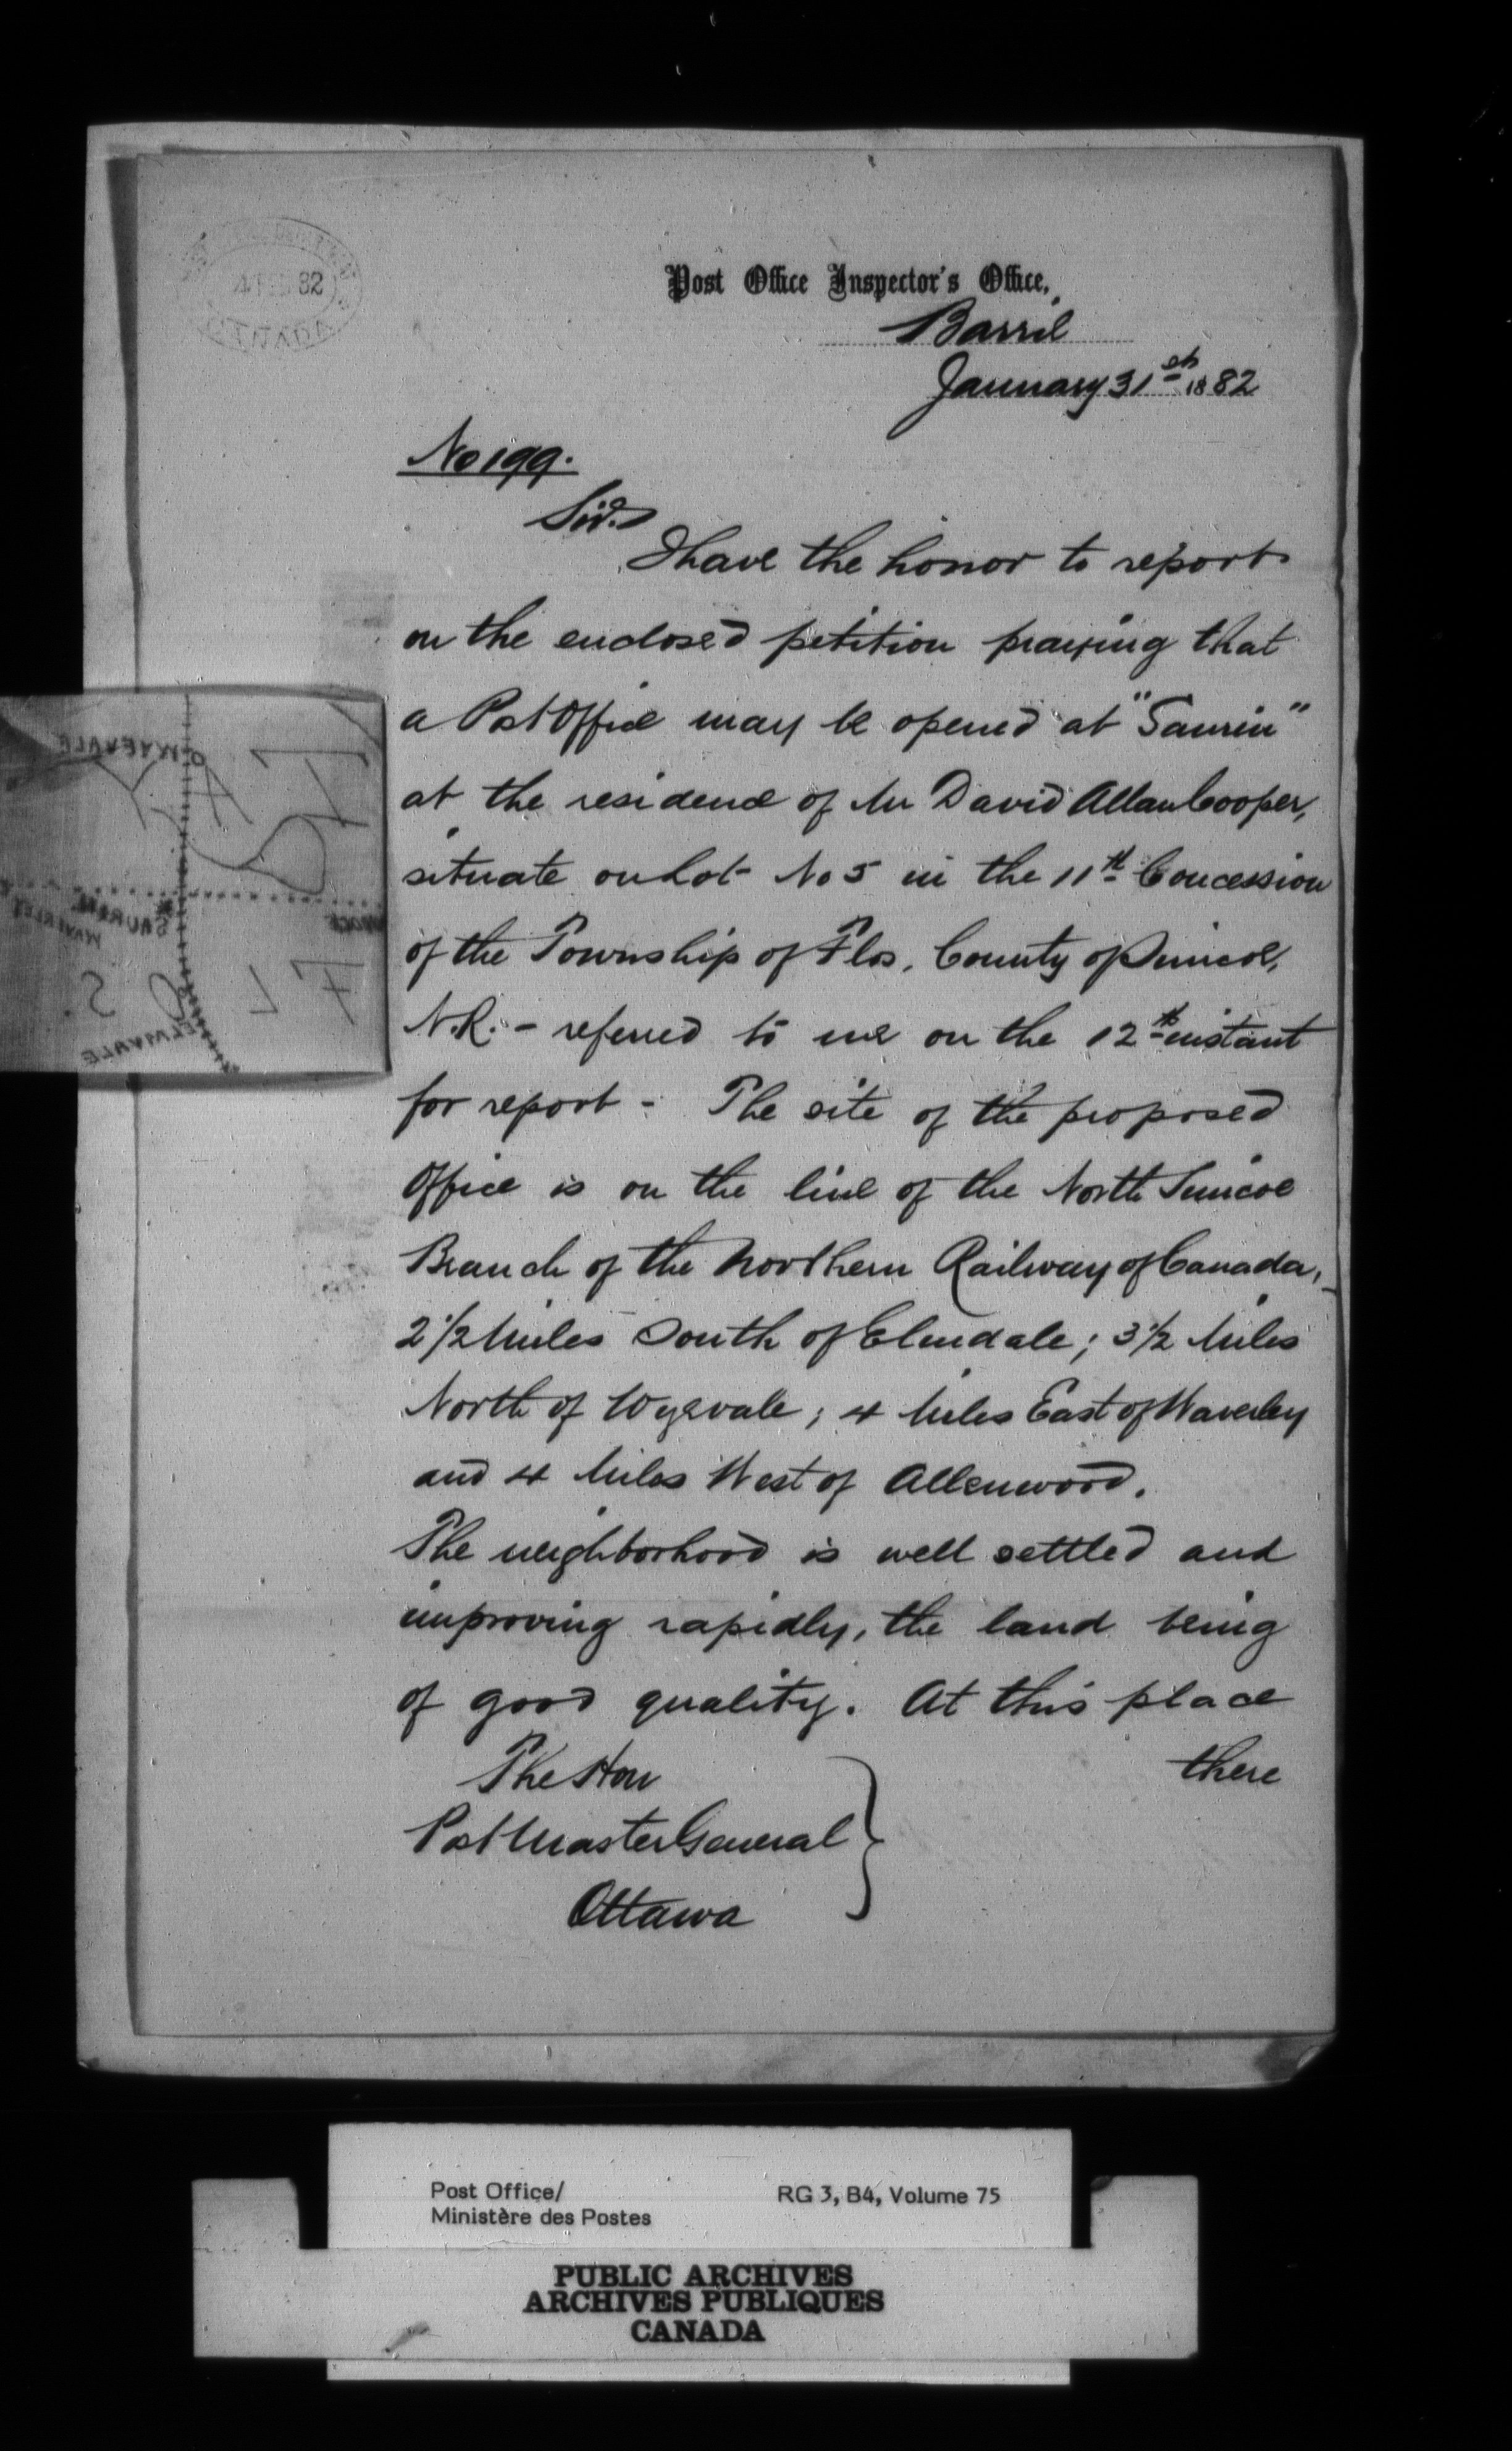 4 FEB 82
CANADA
Post Office Inspector's Office,
Barrie
January 31st 1882
No 199.
Sir.
I have the honor to report
on the enclosed petition praying that
a Post Office may be opened at "Saurin"
at the residence of Mr David Allan Cooper,
situate on Lot No 5 in the 11th Concession
of the Township of Flos, County of Simcoe,
N.R. - referred to me on the 12th instant
for report - The site of the proposed
Office is on the line of the North Simcoe
Branch of the Northern Railway of Canada,
2 1/2 Miles South of Elmdale; 3 1/2 Miles
North of Wyevale; 4 Miles East of Waverley
and 4 Miles West of Allenwood.
The neighborhood is well settled and
improving rapidly, the land being
of good quality. At this place
there
The Hon
Post Master General
Ottawa
WYEVALE
T A Y
SAURIN
WAVERLEY
F L
S
ELMVALE
Post Office/
Ministère des Postes
RG 3, B4, Volume 75
PUBLIC ARCHIVES
ARCHIVES PUBLIQUES
CANADA